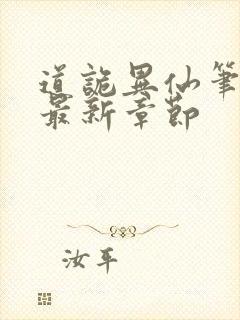 道詭異仙筆
最新章節
汝平